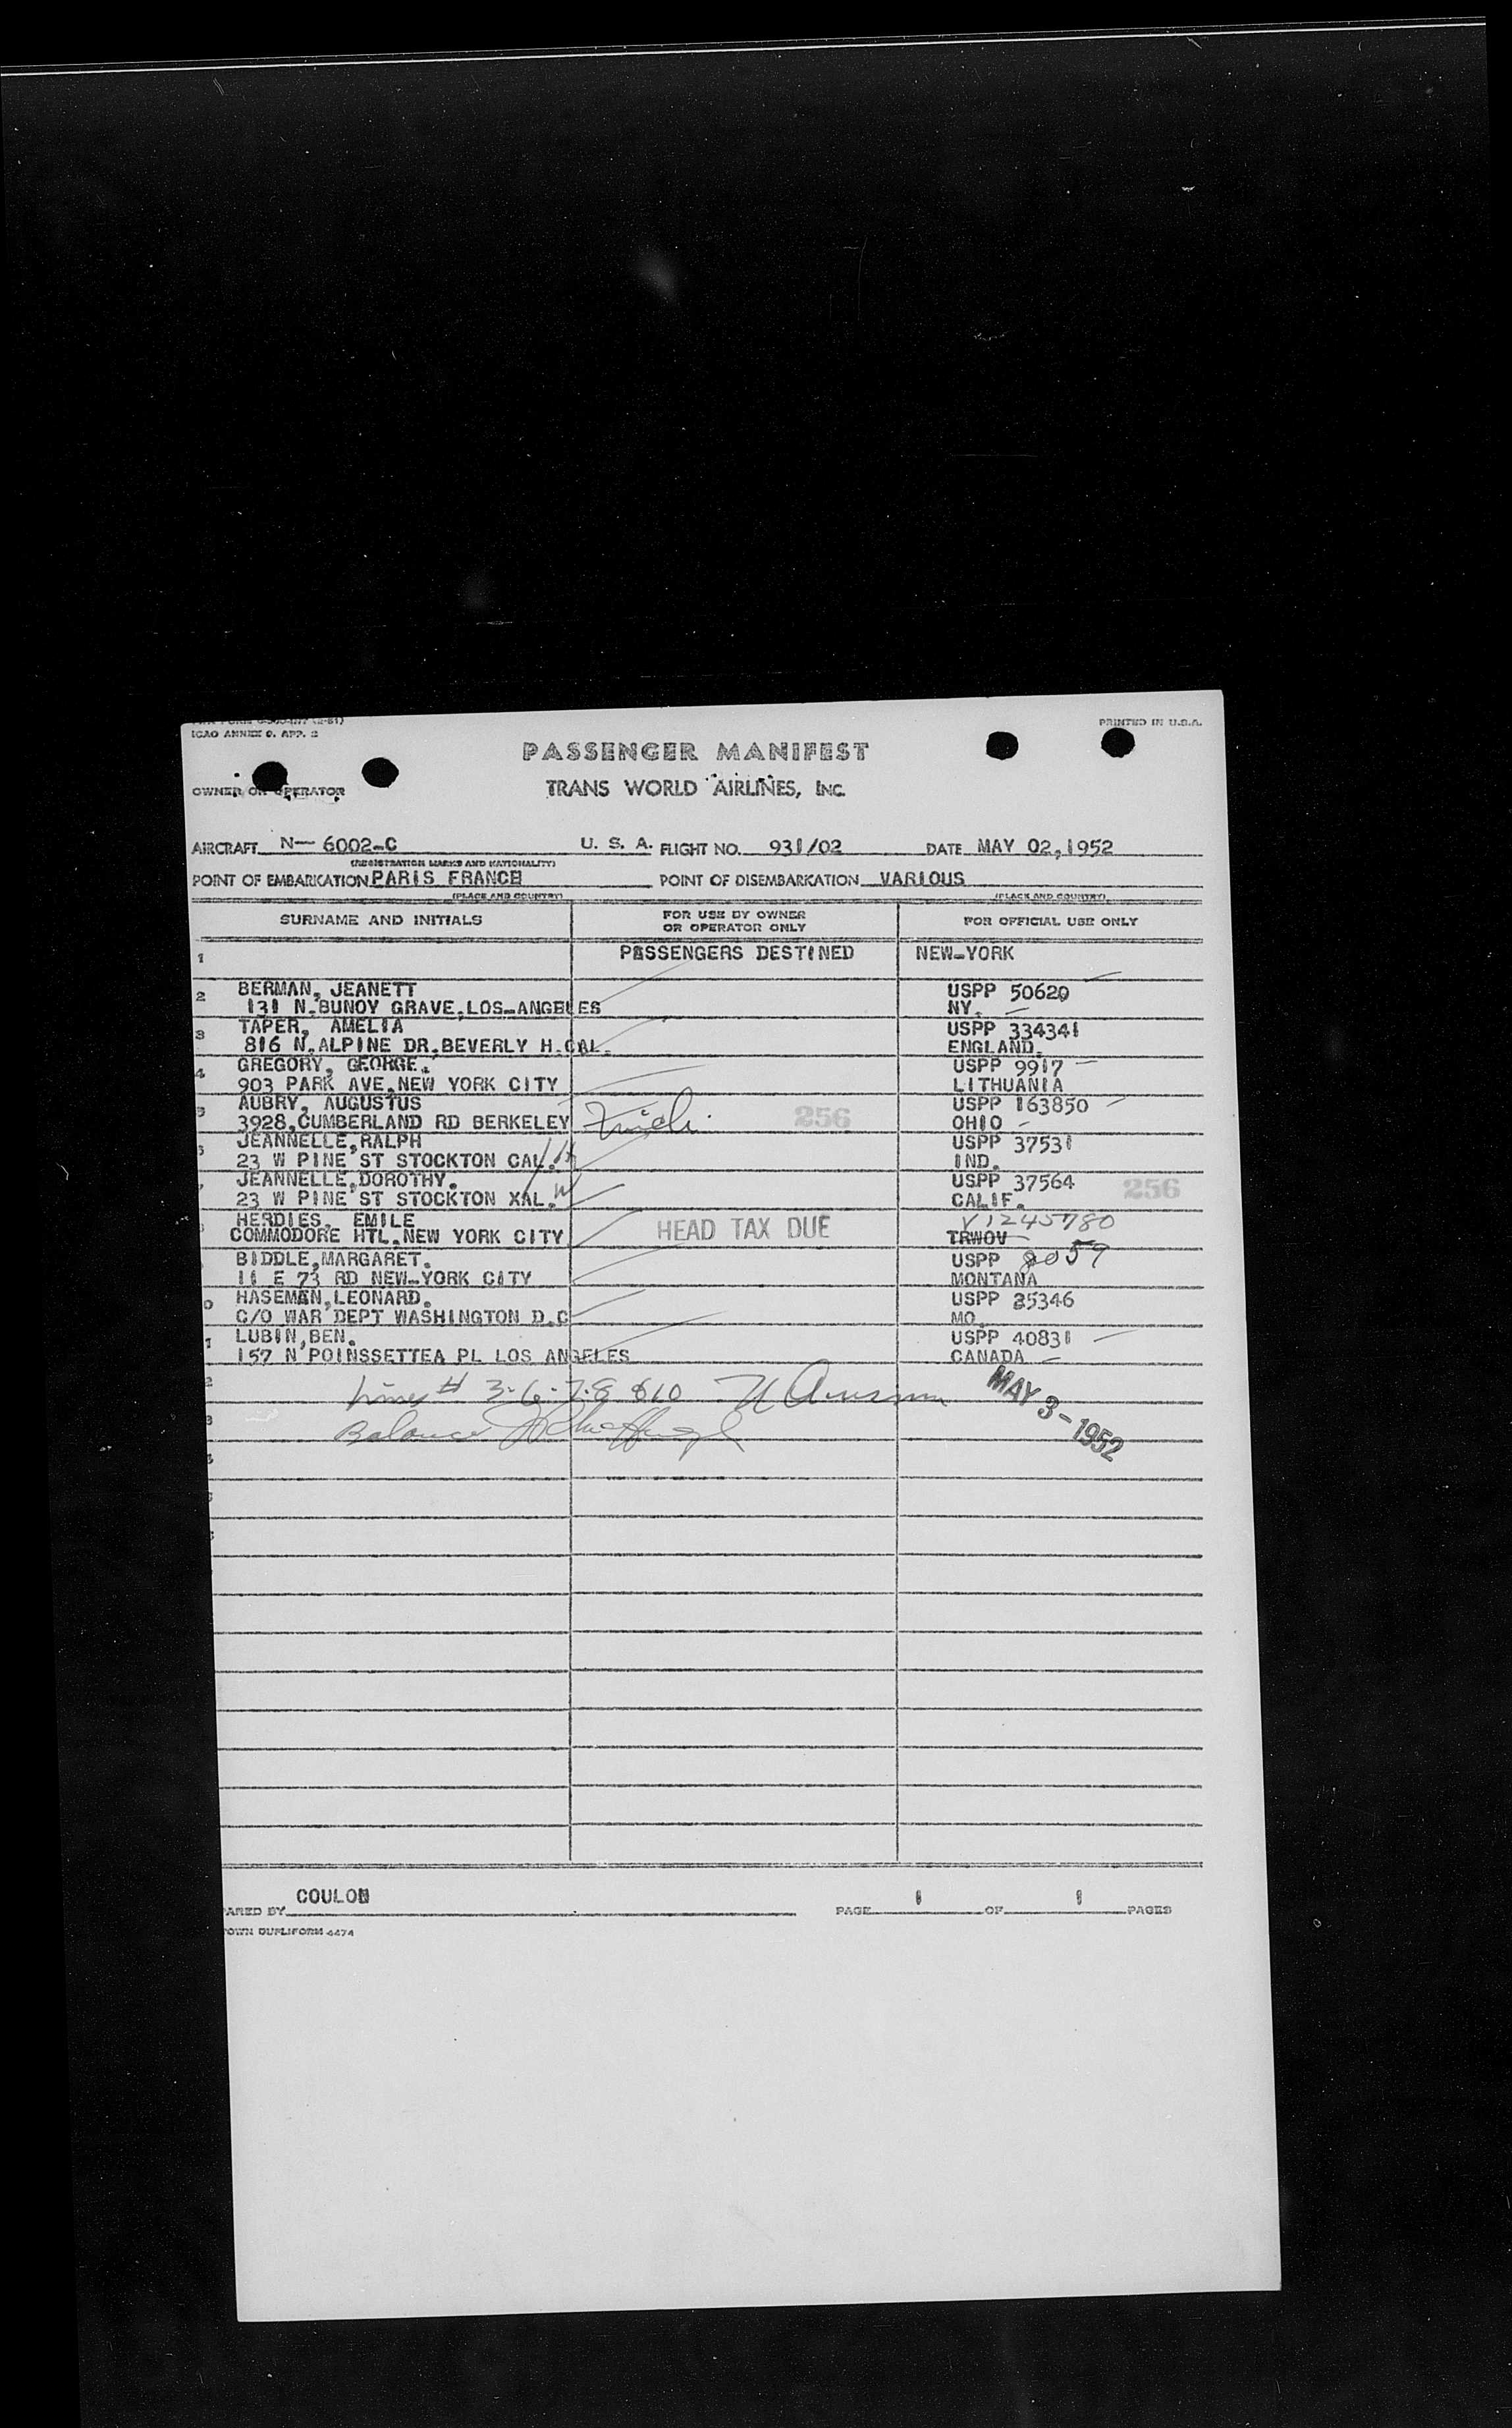 ICAO ANNEX 9. APP. 2
PRINTED IN U.S.A.
PASSENGER MANIFEST
OWNER OR OPERATOR TRANS WORLD AIRLINES, INC.
AIRCRAFT N— 6002-C U. S. A. FLIGHT NO. 931/02 DATE MAY 02,1952
(REGISTRATION MARKS AND NATIONALITY)
POINT OF EMBARKATION PARIS FRANCE POINT OF DISEMBARKATION VARIOUS
(PLACE AND COUNTRY) (PLACE AND COUNTRY)
SURNAME AND INITIALS FOR USE BY OWNER OR OPERATOR ONLY FOR OFFICIAL USE ONLY
1 PASSENGERS DESTINED NEW-YORK
2 BERMAN, JEANETT USPP 50620
131 N.BUNOY GRAVE,LOS-ANGELES NY.
3 TAPER, AMELIA USPP 334341
816 N.ALPINE DR.BEVERLY H.CAL. ENGLAND.
4 GREGORY, GEORGE. USPP 9917
903 PARK AVE,NEW YORK CITY LITHUANIA
5 AUBRY, AUGUSTUS USPP 163850
3928,CUMBERLAND RD BERKELEY 256 OHIO
JEANNELLE,RALPH USPP 37531
23 W PINE ST STOCKTON CAL. IND.
JEANNELLE,DOROTHY. USPP 37564
23 W PINE ST STOCKTON XAL. CALIF. 256
HERDIES, EMILE V1245780
COMMODORE HTL,NEW YORK CITY HEAD TAX DUE TRWOV
BIDDLE,MARGARET. USPP 8059
11 E 73 RD NEW-YORK CITY MONTANA
0 HASEMAN,LEONARD. USPP 25346
C/O WAR DEPT WASHINGTON D.C MO.
1 LUBIN,BEN. USPP 40831
157 N POINSSETTEA PL LOS ANGELES CANADA
2 Lines # 3-6-7-8 &10
MAY 3-1952
3 Balance
COULON
ARED BY PAGE 1 OF 1 PAGES
OWN DUPLIFORM 4474